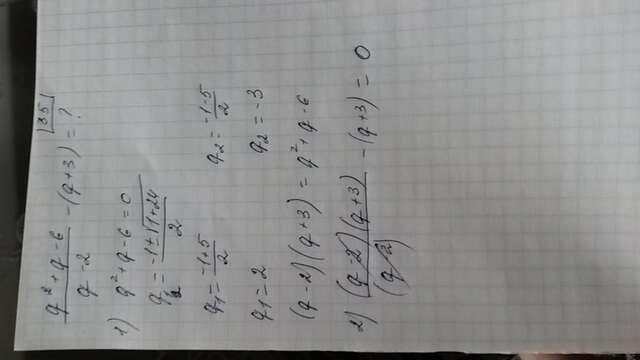 35
(q² + q - 6)/(q - 2) - (q + 3) = ?
1) q² + q - 6 = 0
q₁,₂ = (-1 ± √(1 + 24))/2
q₁ = (-1 + 5)/2 q₂ = (-1 - 5)/2
q₁ = 2 q₂ = -3
(q - 2)(q + 3) = q² + q - 6
2) (q - 2)(q + 3)/(q - 2) - (q + 3) = 0